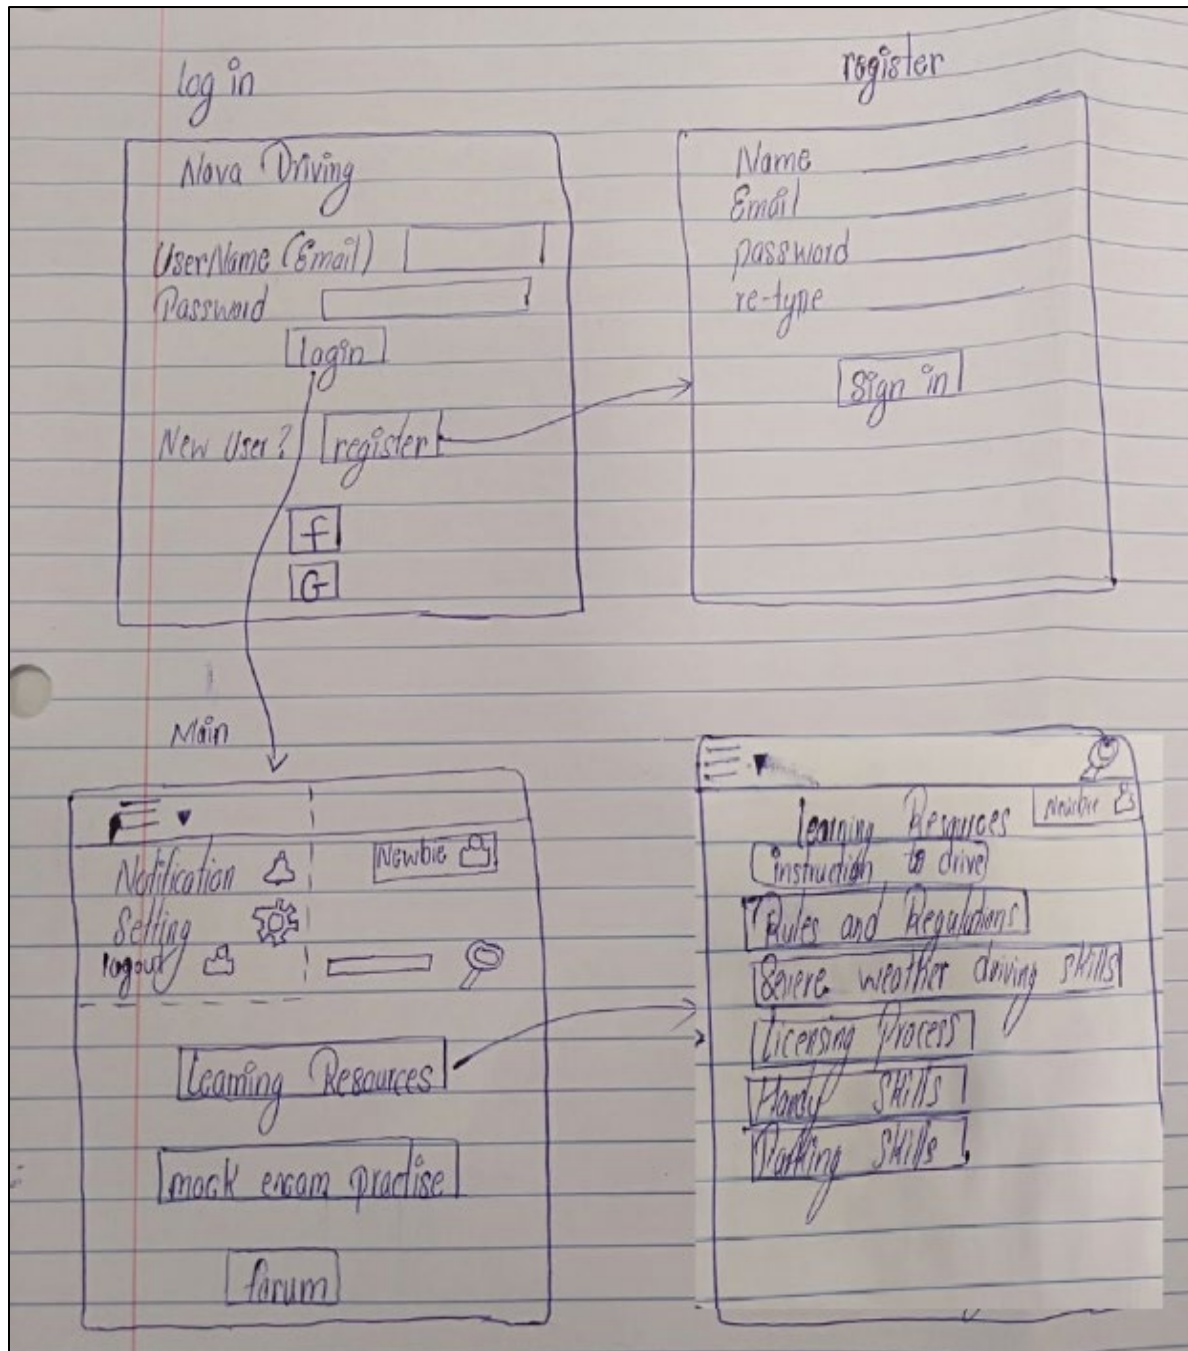 log in
Nova Driving
UserName (Email)
Password
login
New User? register
f
G
register
Name
Email
password
re-type
Sign in
Main
Notification
Newbie
Setting
logout
Learning Resources
mock exam practise
forum
Newbie
learning Resources
instruction to drive
Rules and Regulations
Severe weather driving skills
Licensing Process
Handy Skills
Parking Skills